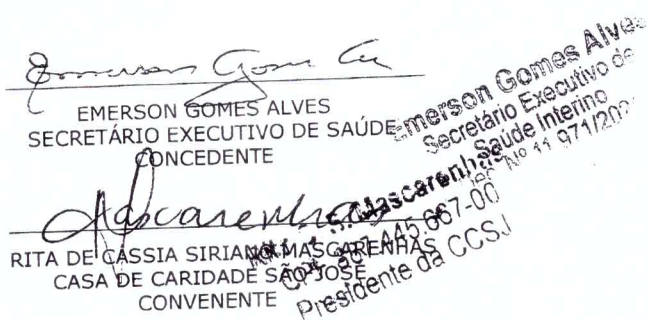 Emerson Gomes
EMERSON GOMES ALVES
SECRETÁRIO EXECUTIVO DE SAÚDE
CONCEDENTE
Emerson Gomes Alves
Secretário Executivo de
Saúde Interino
Nº 11 971/202
Mascarenhas
RITA DE CÁSSIA SIRIANO MASCARENHAS
CASA DE CARIDADE SÃO JOSÉ
CONVENENTE
Mascarenhas
445.667-00
Presidente da CCSJ